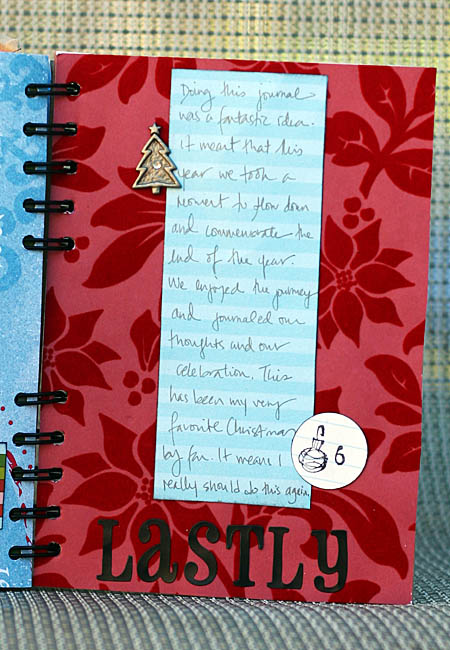 Doing this journal
was a fantastic idea.
It meant that this
year we took a
moment to slow down
and commemorate the
end of the year.
We enjoyed the journey
and journaled our
thoughts and our
celebration. This
has been my very
favorite Christmas
by far. It means I
really should do this again.
6
LaSTLy